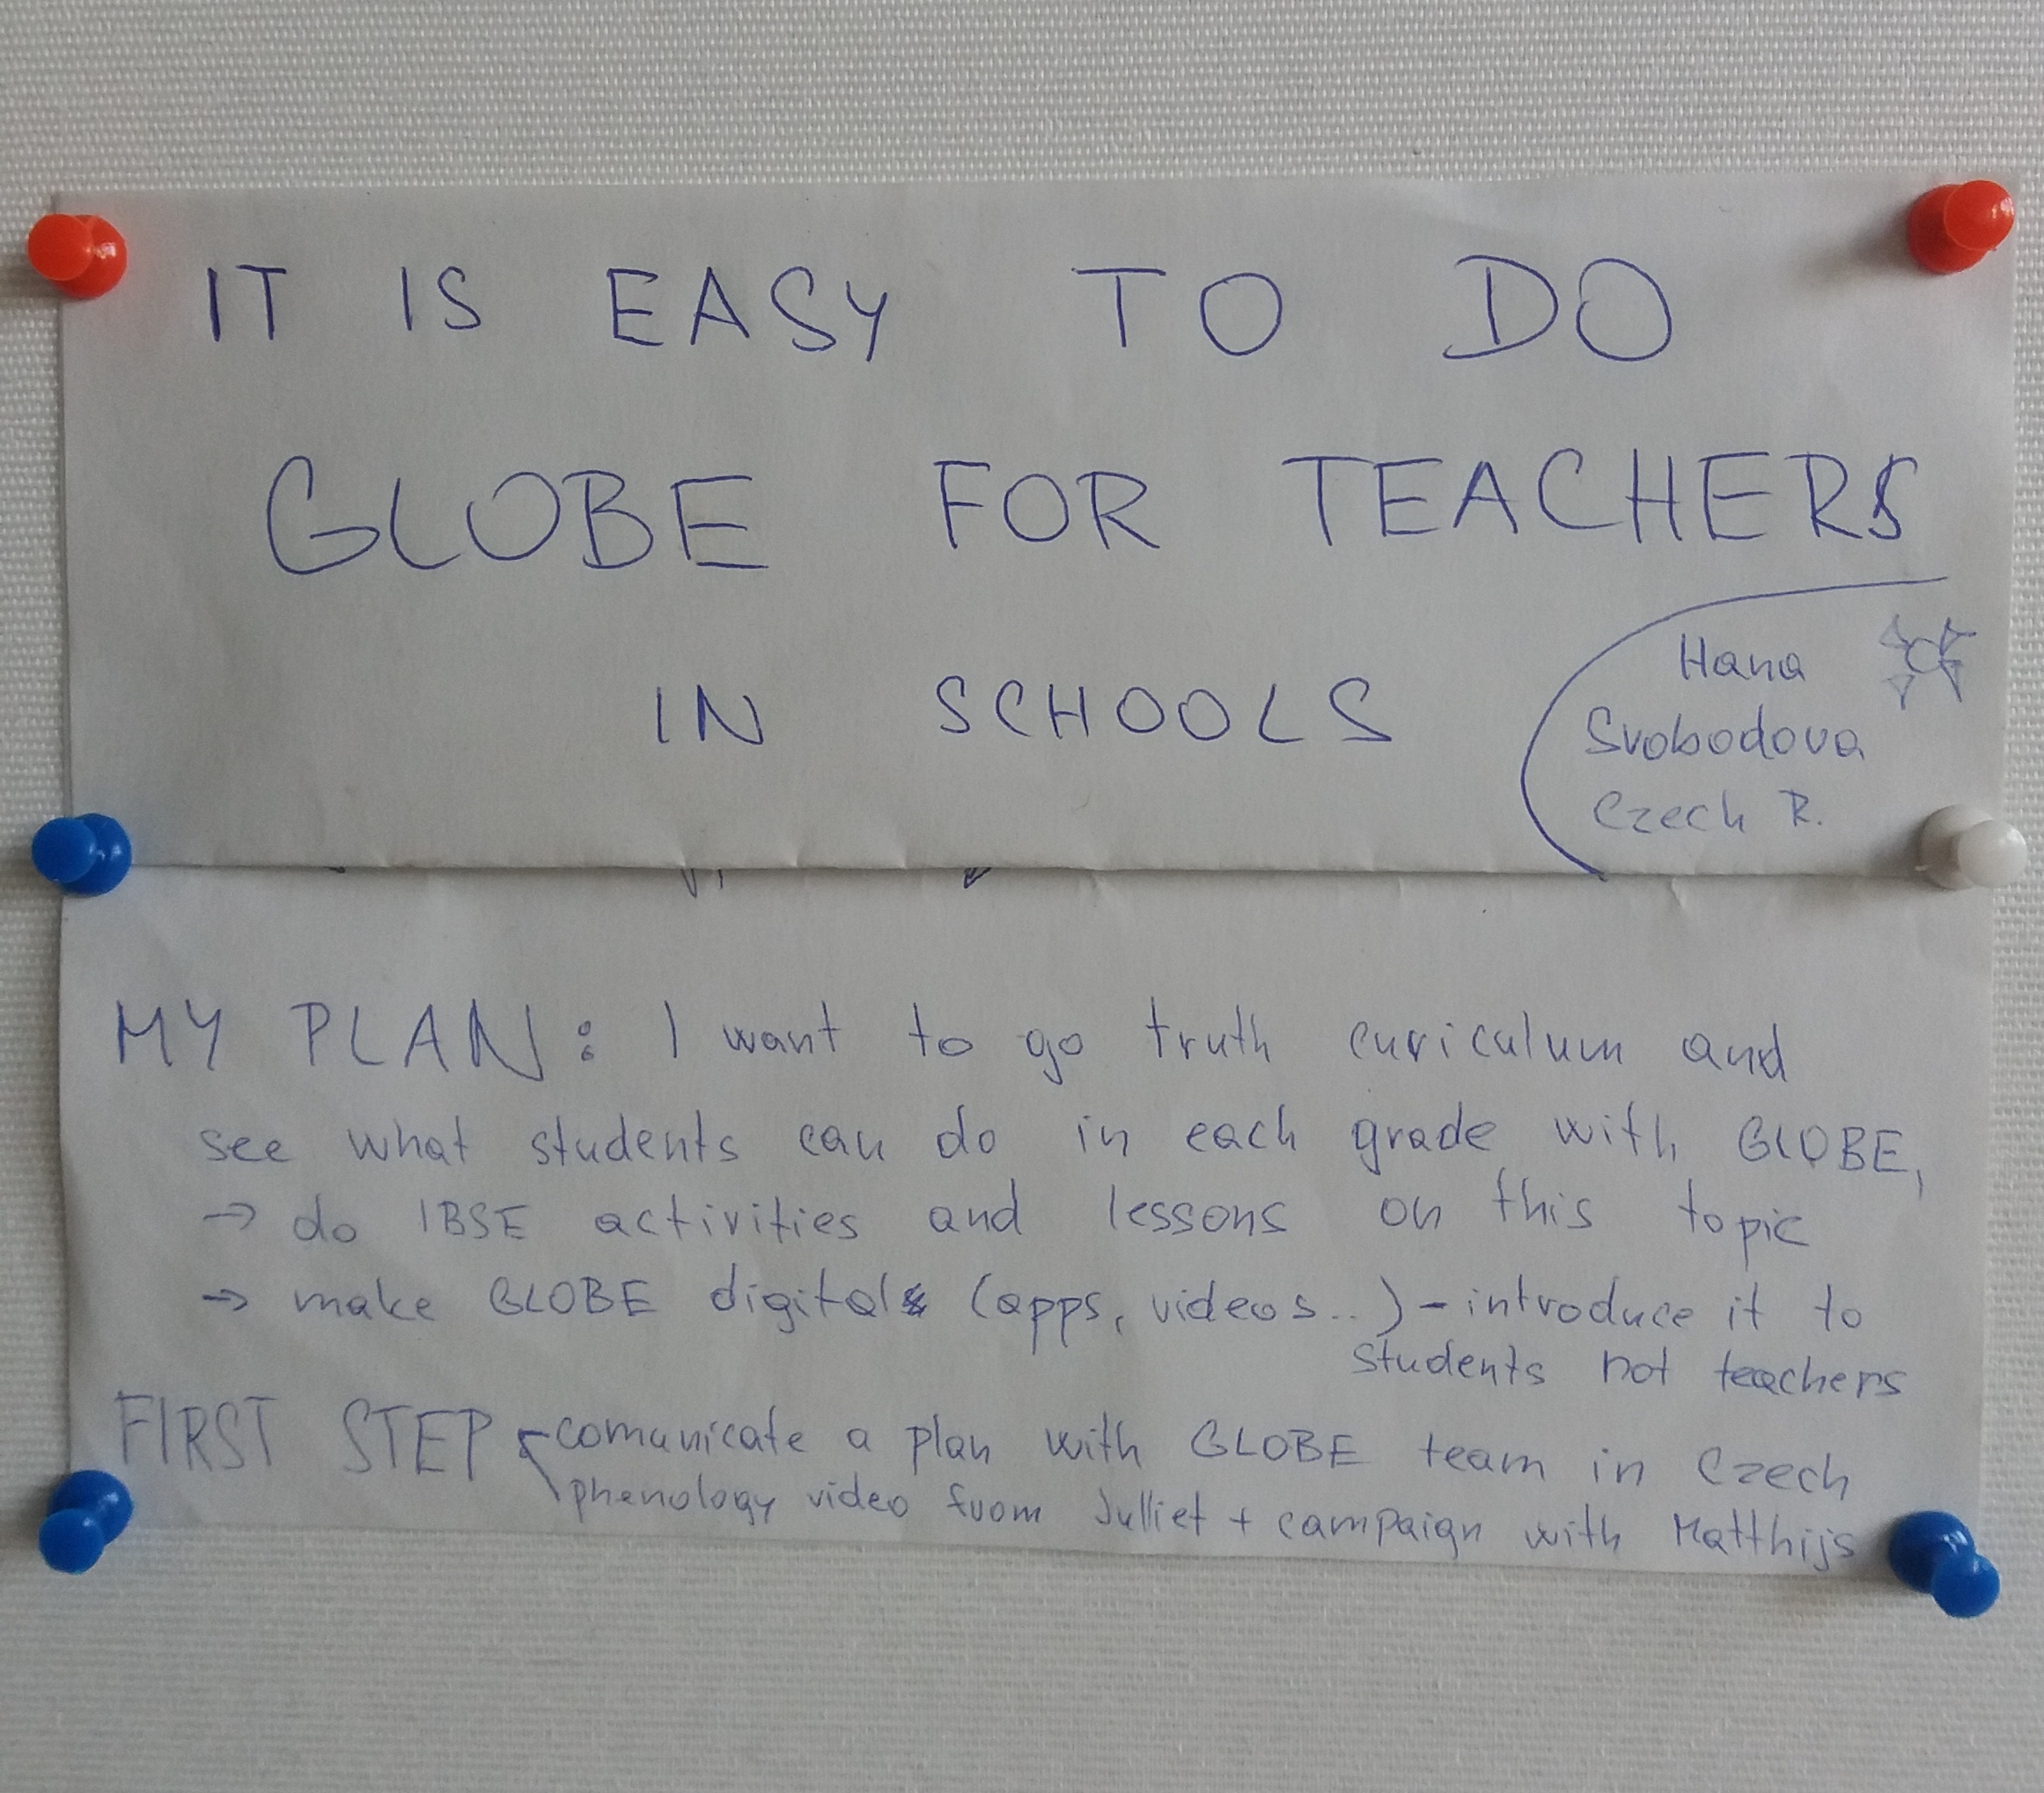 IT IS EASY TO DO
GLOBE FOR TEACHERS
IN SCHOOLS
Hana
Svobodova
Czech R.
MY PLAN: I want to go truth curiculum and
see what students can do in each grade with GLOBE,
→ do IBSE activities and lessons on this topic
→ make GLOBE digital (apps, videos..) - introduce it to
students not teachers
FIRST STEP comunicate a plan with GLOBE team in Czech
phenology video from Julliet + campaign with Matthijs